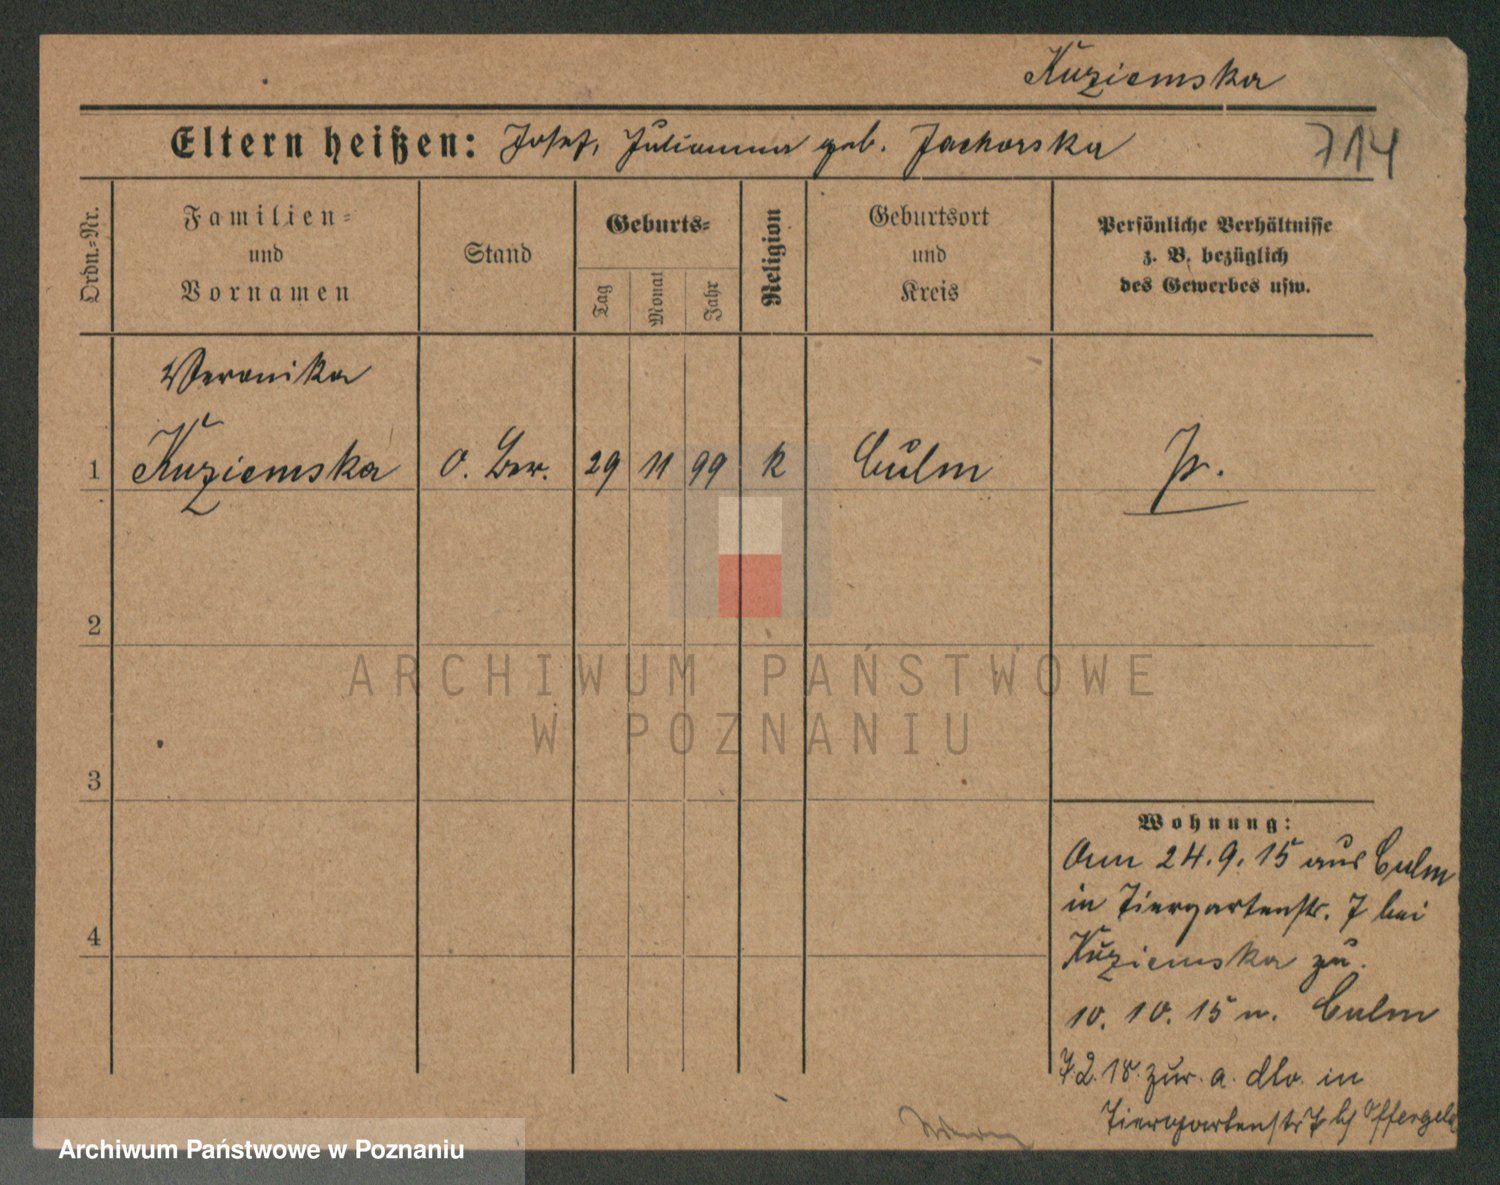 Kuziemska
Eltern heißen: Josef, Julianna geb. Jachorska
714
Ordn.=Nr.
Familien=
und
Vornamen
Stand
Geburts=
Tag
Monat
Jahr
Religion
Geburtsort
und
Kreis
Persönliche Verhältnisse
z. B. bezüglich
des Gewerbes usw.
Veronika
1 Kuziemska o. Ber. 29 11 99 k Culm Pr.
2
3
4
ARCHIWUM PAŃSTWOWE
W POZNANIU
Wohnung:
Am 24.9.15 aus Culm
in Tiergartenstr. 7 bei
Kuziemska zu.
10. 10. 15 n. Culm
7.2.18. zur. a. dto. in
Tiergartenstr 7 b/
Archiwum Państwowe w Poznaniu